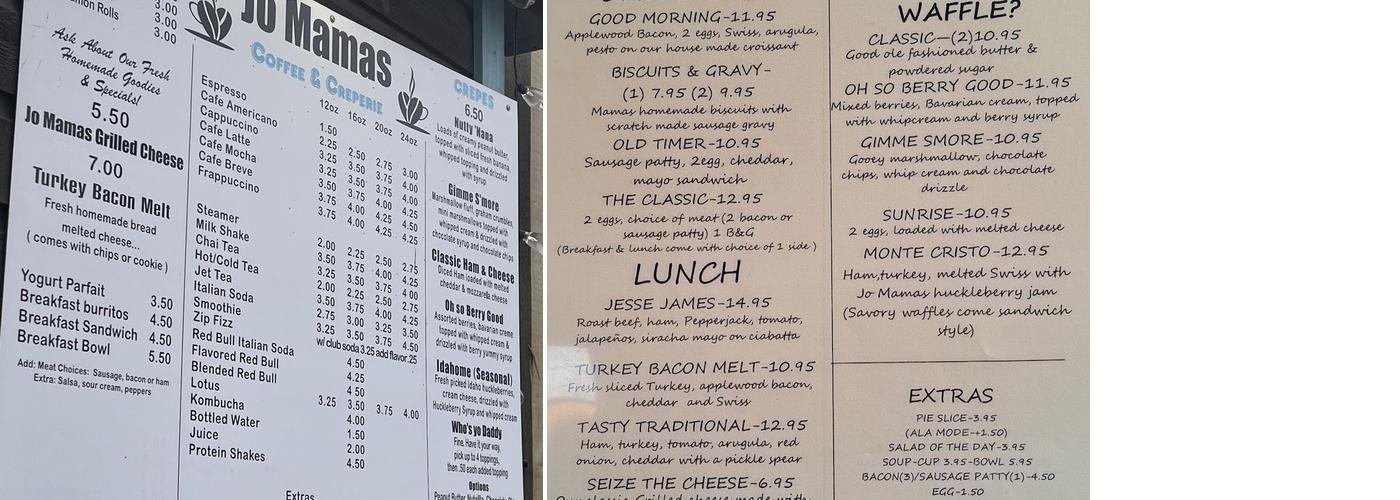 3.00
mon Rolls 3.00
3.00
Ask About Our Fresh
Homemade Goodies
& Specials!
5.50
Jo Mamas Grilled Cheese
7.00
Turkey Bacon Melt
Fresh homemade bread
melted cheese...
( comes with chips or cookie )
Yogurt Parfait 3.50
Breakfast burritos 4.50
Breakfast Sandwich 4.50
Breakfast Bowl 5.50
Add: Meat Choices: Sausage, bacon or ham
Extra: Salsa, sour cream, peppers
Jo Mamas
COFFEE & CREPERIE
12oz 16oz 20oz 24oz
Espresso 1.50
Cafe Americano 2.25 2.50 2.75 3.00
Cappuccino 3.25 3.50 3.75 4.00
Cafe Latte 3.25 3.50 3.75 4.00
Cafe Mocha 3.50 3.75 4.00 4.25
Cafe Breve 3.75 4.00 4.25 4.50
Frappuccino 3.75 4.00 4.25 4.25
Steamer 2.00 2.25 2.50 2.75
Milk Shake 3.50 3.75 4.00 4.25
Chai Tea 3.25 3.50 3.75 4.00
Hot/Cold Tea 2.00 2.25 2.50 2.75
Jet Tea 3.50 3.75 4.00 4.25
Italian Soda 2.75 3.00 3.25 3.50
Smoothie 3.25 3.50 3.75
Zip Fizz w/ club soda 3.25 add flavor .25
Red Bull Italian Soda 4.50
Flavored Red Bull 4.25
Blended Red Bull 4.50
Lotus 3.25 3.50 3.75 4.00
Kombucha 4.00
Bottled Water 1.50
Juice 2.00
Protein Shakes 4.50
Extras
CREPES
6.50
Nutty 'Nana
Loads of creamy peanut butter,
topped with sliced fresh banana,
whipped topping and drizzled
with syrup
Gimme S'more
Marshmallow fluff, graham crumbles,
mini marshmallows topped with
whipped cream & drizzled with
chocolate syrup and chocolate chips
Classic Ham & Cheese
Diced Ham loaded with melted
cheddar & mozzarella cheese
Oh so Berry Good
Assorted berries, bavarian creme
topped with whipped cream &
drizzled with berry yummy syrup
Idahome (Seasonal)
Fresh picked Idaho huckleberries,
cream cheese, drizzled with
Huckleberry Syrup and whipped cream
Who's yo Daddy
Fine. Have it your way,
pick up to 4 toppings,
then .50 each added topping
Options
GOOD MORNING-11.95
Applewood Bacon, 2 eggs, Swiss, arugula,
pesto on our house made croissant
BISCUITS & GRAVY-
(1) 7.95 (2) 9.95
Mamas homemade biscuits with
scratch made sausage gravy
OLD TIMER-10.95
Sausage patty, 2egg, cheddar,
mayo sandwich
THE CLASSIC-12.95
2 eggs, choice of meat(2 bacon or
sausage patty) 1 B&G
(Breakfast & lunch come with choice of 1 side )
LUNCH
JESSE JAMES-14.95
Roast beef, ham, Pepperjack, tomato,
jalapeños, siracha mayo on ciabatta
TURKEY BACON MELT-10.95
Fresh sliced Turkey, applewood bacon,
cheddar and Swiss
TASTY TRADITIONAL-12.95
Ham, turkey, tomato, arugula, red
onion, cheddar with a pickle spear
SEIZE THE CHEESE-6.95
WAFFLE?
CLASSIC—(2)10.95
Good ole fashioned butter &
powdered sugar
OH SO BERRY GOOD-11.95
Mixed berries, Bavarian cream, topped
with whipcream and berry syrup
GIMME SMORE-10.95
Gooey marshmallow, chocolate
chips, whip cream and chocolate
drizzle
SUNRISE-10.95
2 eggs, loaded with melted cheese
MONTE CRISTO-12.95
Ham,turkey, melted Swiss with
Jo Mamas huckleberry jam
(Savory waffles come sandwich
style)
EXTRAS
PIE SLICE-3.95
(ALA MODE-+1.50)
SALAD OF THE DAY-3.95
SOUP-CUP 3.95-BOWL 5.95
BACON(3)/SAUSAGE PATTY(1)-4.50
EGG-1.50